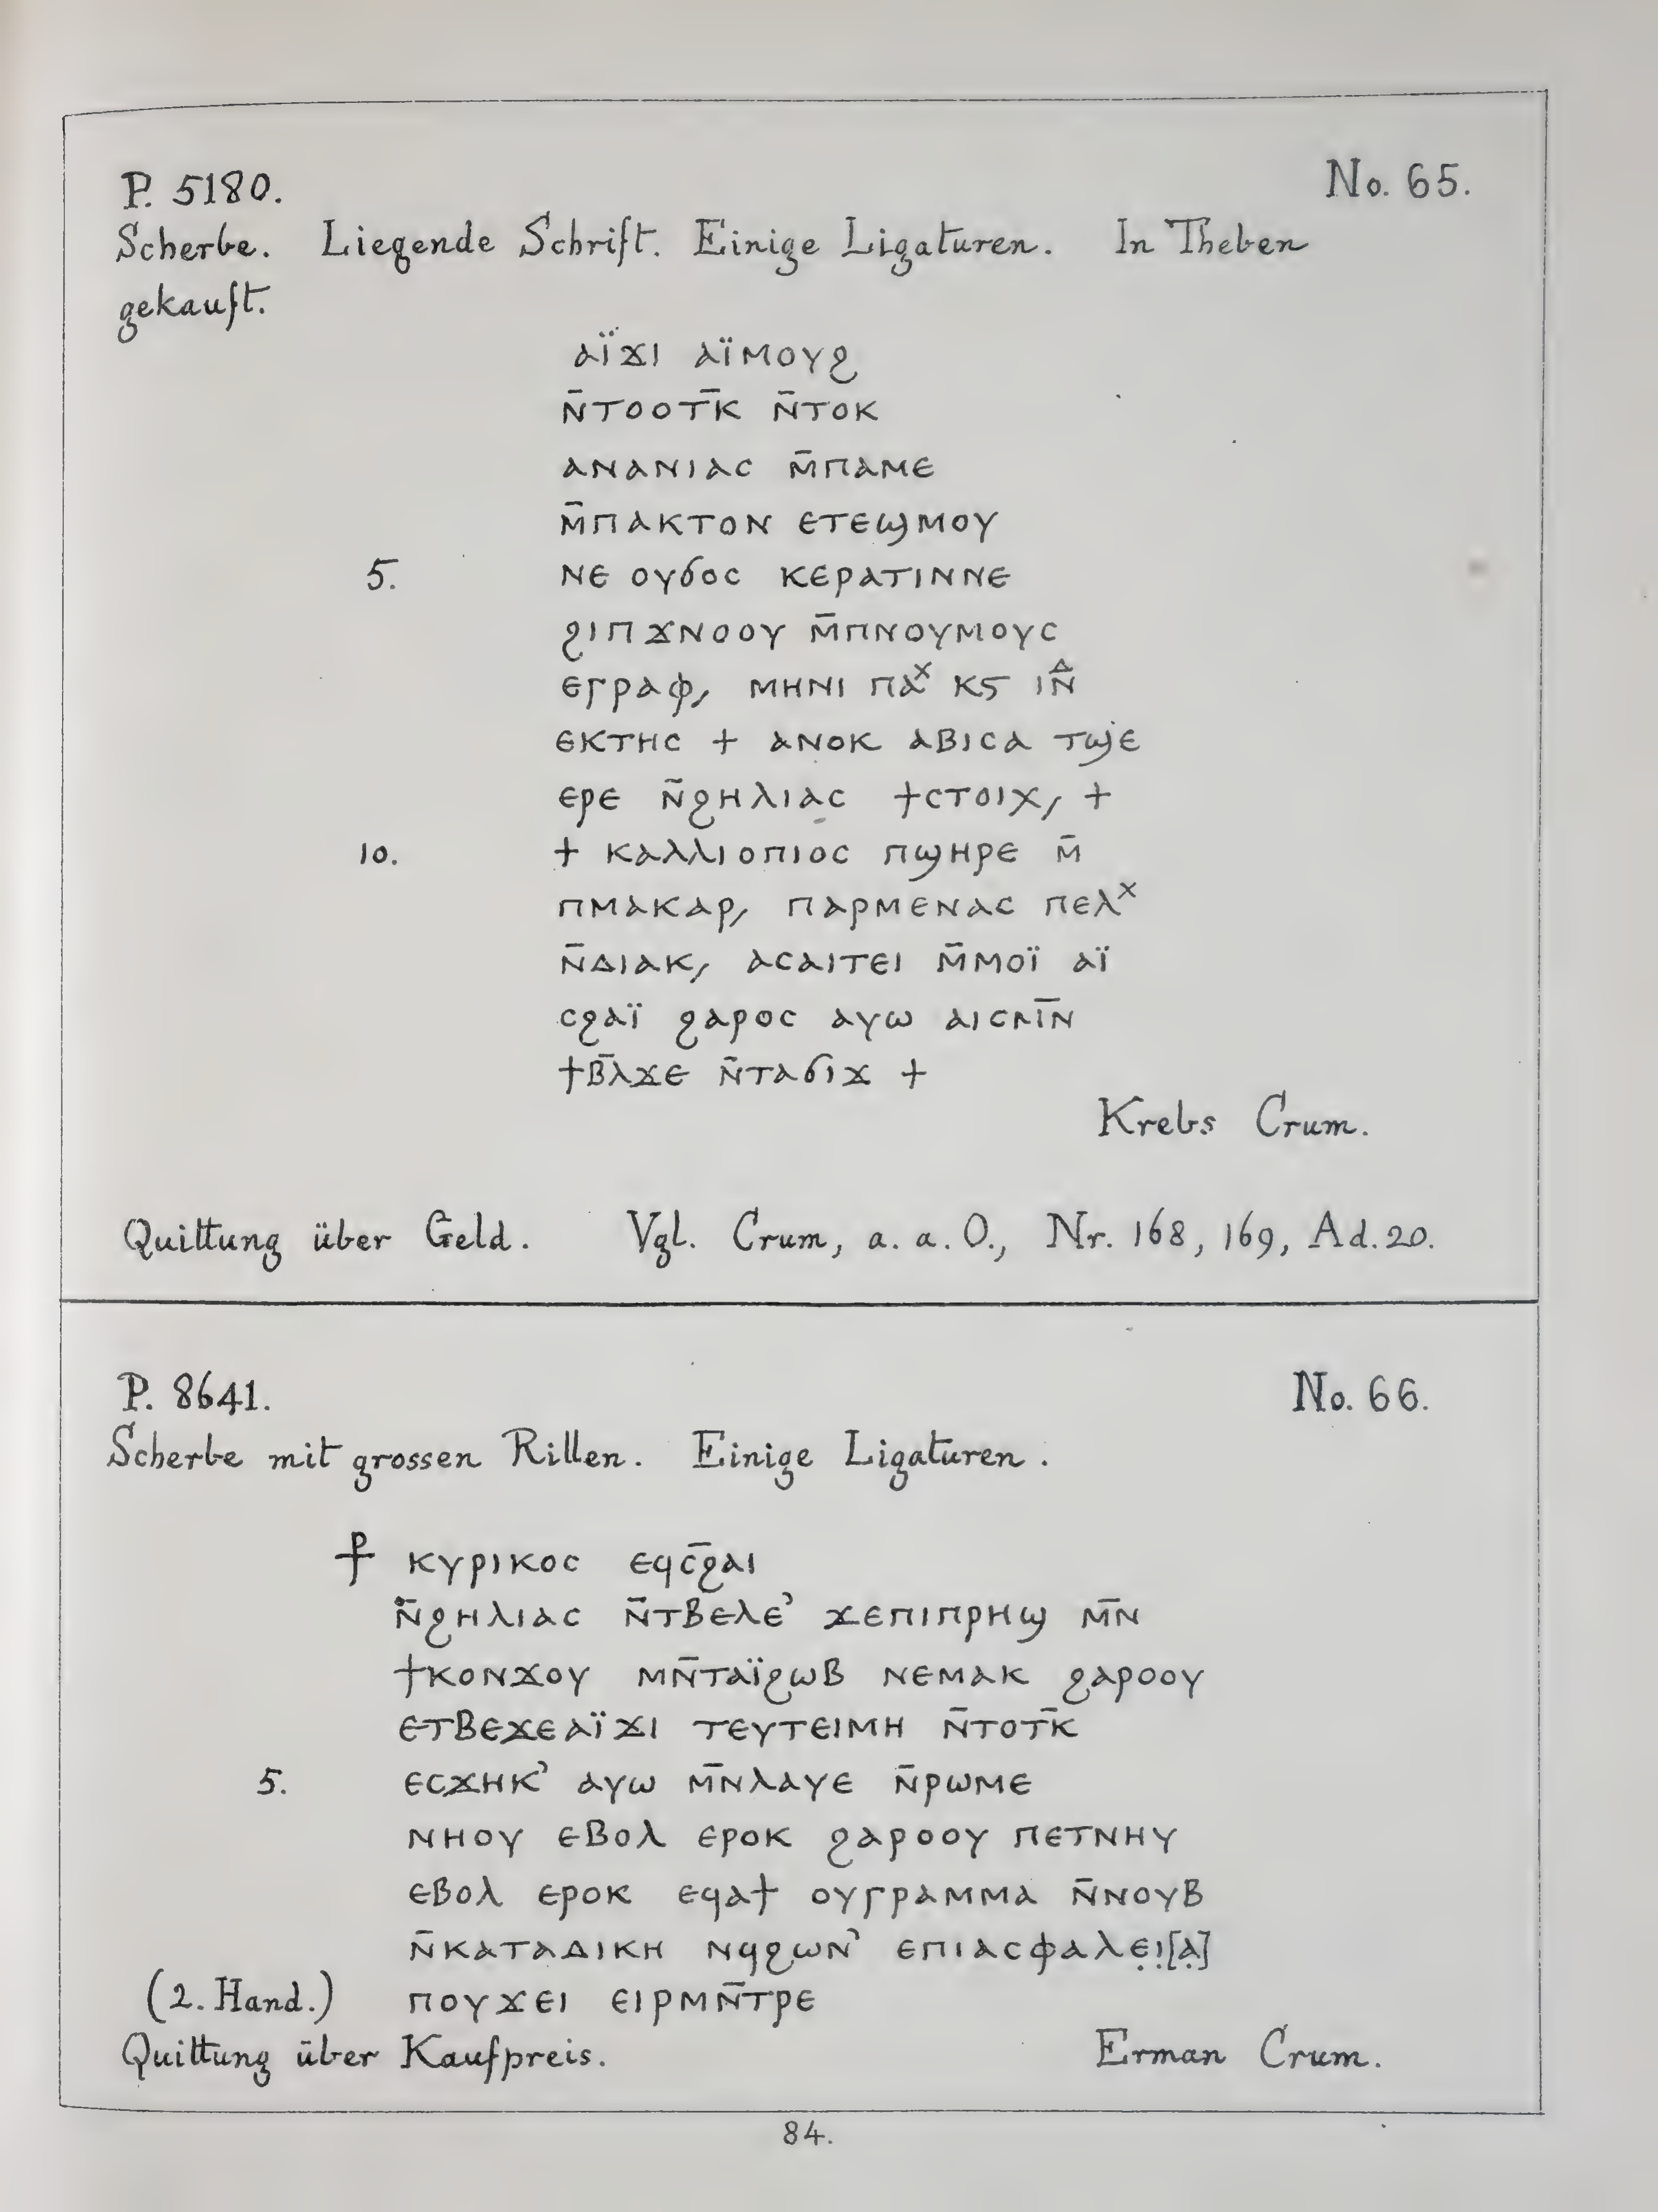 P. 5180.
No. 65.
Scherbe. Liegende Schrift. Einige Ligaturen. In Theben
gekauft.
ⲁⲓ̈ϫⲓ ⲁⲓ̈ⲙⲟⲩϩ
ⲛ̄ⲧⲟⲟⲧⲕ̄ ⲛ̄ⲧⲟⲕ
ⲁⲛⲁⲛⲓⲁⲥ ⲙ̄ⲡⲁⲙⲉ
ⲙ̄ⲡⲁⲕⲧⲟⲛ ⲉⲧⲉϣⲙⲟⲩ
5. ⲛⲉ ⲟⲩϭⲟⲥ ⲕⲉⲣⲁⲧⲓⲛⲛⲉ
ϩⲓⲡϫⲛⲟⲟⲩ ⲙ̄ⲡⲛⲟⲩⲙⲟⲩⲥ
ⲉⲅⲣⲁⲫ, ⲙⲏⲛⲓ ⲡⲁˣ ⲕϛ ⲓⲛ̄ᐞ
ⲉⲕⲧⲏⲥ + ⲁⲛⲟⲕ ⲁⲃⲓⲥⲁ ⲧϣⲉ
ⲉⲣⲉ ⲛ̄ϩⲏⲗⲓⲁⲥ ϯⲥⲧⲟⲓⲭ, +
10. + ⲕⲁⲗⲗⲓⲟⲡⲓⲟⲥ ⲡϣⲏⲣⲉ ⲙ̄
ⲡⲙⲁⲕⲁⲣ, ⲡⲁⲣⲙⲉⲛⲁⲥ ⲡⲉⲗˣ
ⲛ̄ⲇⲓⲁⲕ, ⲁⲥⲁⲓⲧⲉⲓ ⲙ̄ⲙⲟⲓ̈ ⲁⲓ̈
ⲥϩⲁⲓ̈ ϩⲁⲣⲟⲥ ⲁⲩⲱ ⲁⲓⲥⲙⲓ̄ⲛ
ϯⲃ̄ⲗϫⲉ ⲛ̄ⲧⲁϭⲓϫ +
Krebs Crum.
Quittung über Geld. Vgl. Crum, a. a. O., Nr. 168, 169, Ad. 20.
P. 8641.
No. 66.
Scherbe mit grossen Rillen. Einige Ligaturen.
⳨ ⲕⲩⲣⲓⲕⲟⲥ ⲉϥⲥ̄ϩⲁⲓ
ⲛ̄ϩⲏⲗⲓⲁⲥ ⲛ̄ⲧⲃⲉⲗⲉ’ ϫⲉⲡⲓⲡⲣⲏϣ ⲙⲛ̄
ϯⲕⲟⲛϫⲟⲩ ⲙⲛ̄ⲧⲁⲓ̈ϩⲱⲃ ⲛⲉⲙⲁⲕ ϩⲁⲣⲟⲟⲩ
ⲉⲧⲃⲉϫⲉⲁⲓ̈ϫⲓ ⲧⲉⲩⲧⲉⲓⲙⲏ ⲛ̄ⲧⲟⲧⲕ̄
5. ⲉⲥϫⲏⲕ’ ⲁⲩⲱ ⲙⲛ̄ⲗⲁⲩⲉ ⲛ̄ⲣⲱⲙⲉ
ⲛⲏⲟⲩ ⲉⲃⲟⲗ ⲉⲣⲟⲕ ϩⲁⲣⲟⲟⲩ ⲡⲉⲧⲛⲏⲩ
ⲉⲃⲟⲗ ⲉⲣⲟⲕ ⲉϥⲁϯ ⲟⲩⲅⲣⲁⲙⲙⲁ ⲛ̄ⲛⲟⲩⲃ
ⲛ̄ⲕⲁⲧⲁⲇⲓⲕⲏ ⲛϥϩⲱⲛ’ ⲉⲡⲓⲁⲥⲫⲁⲗⲉ̣ⲓ̣[ⲁ̣]
(2. Hand.) ⲡⲟⲩϫⲉⲓ ⲉⲓⲣⲙⲛ̄ⲧⲣⲉ
Quittung über Kaufpreis. Erman Crum.
84.